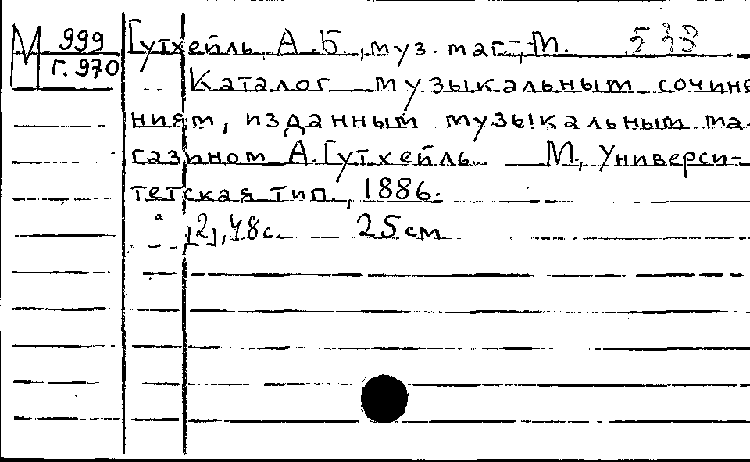 М 999
Г.970
Гутхейль, А.Б., муз. маг., М. 533
Каталог музыкальным сочине
ниям, изданным музыкальным ма-
газином А. Гутхейль. М., Универси-
тетская тип., 1886.
[2], 48 с. 25 см